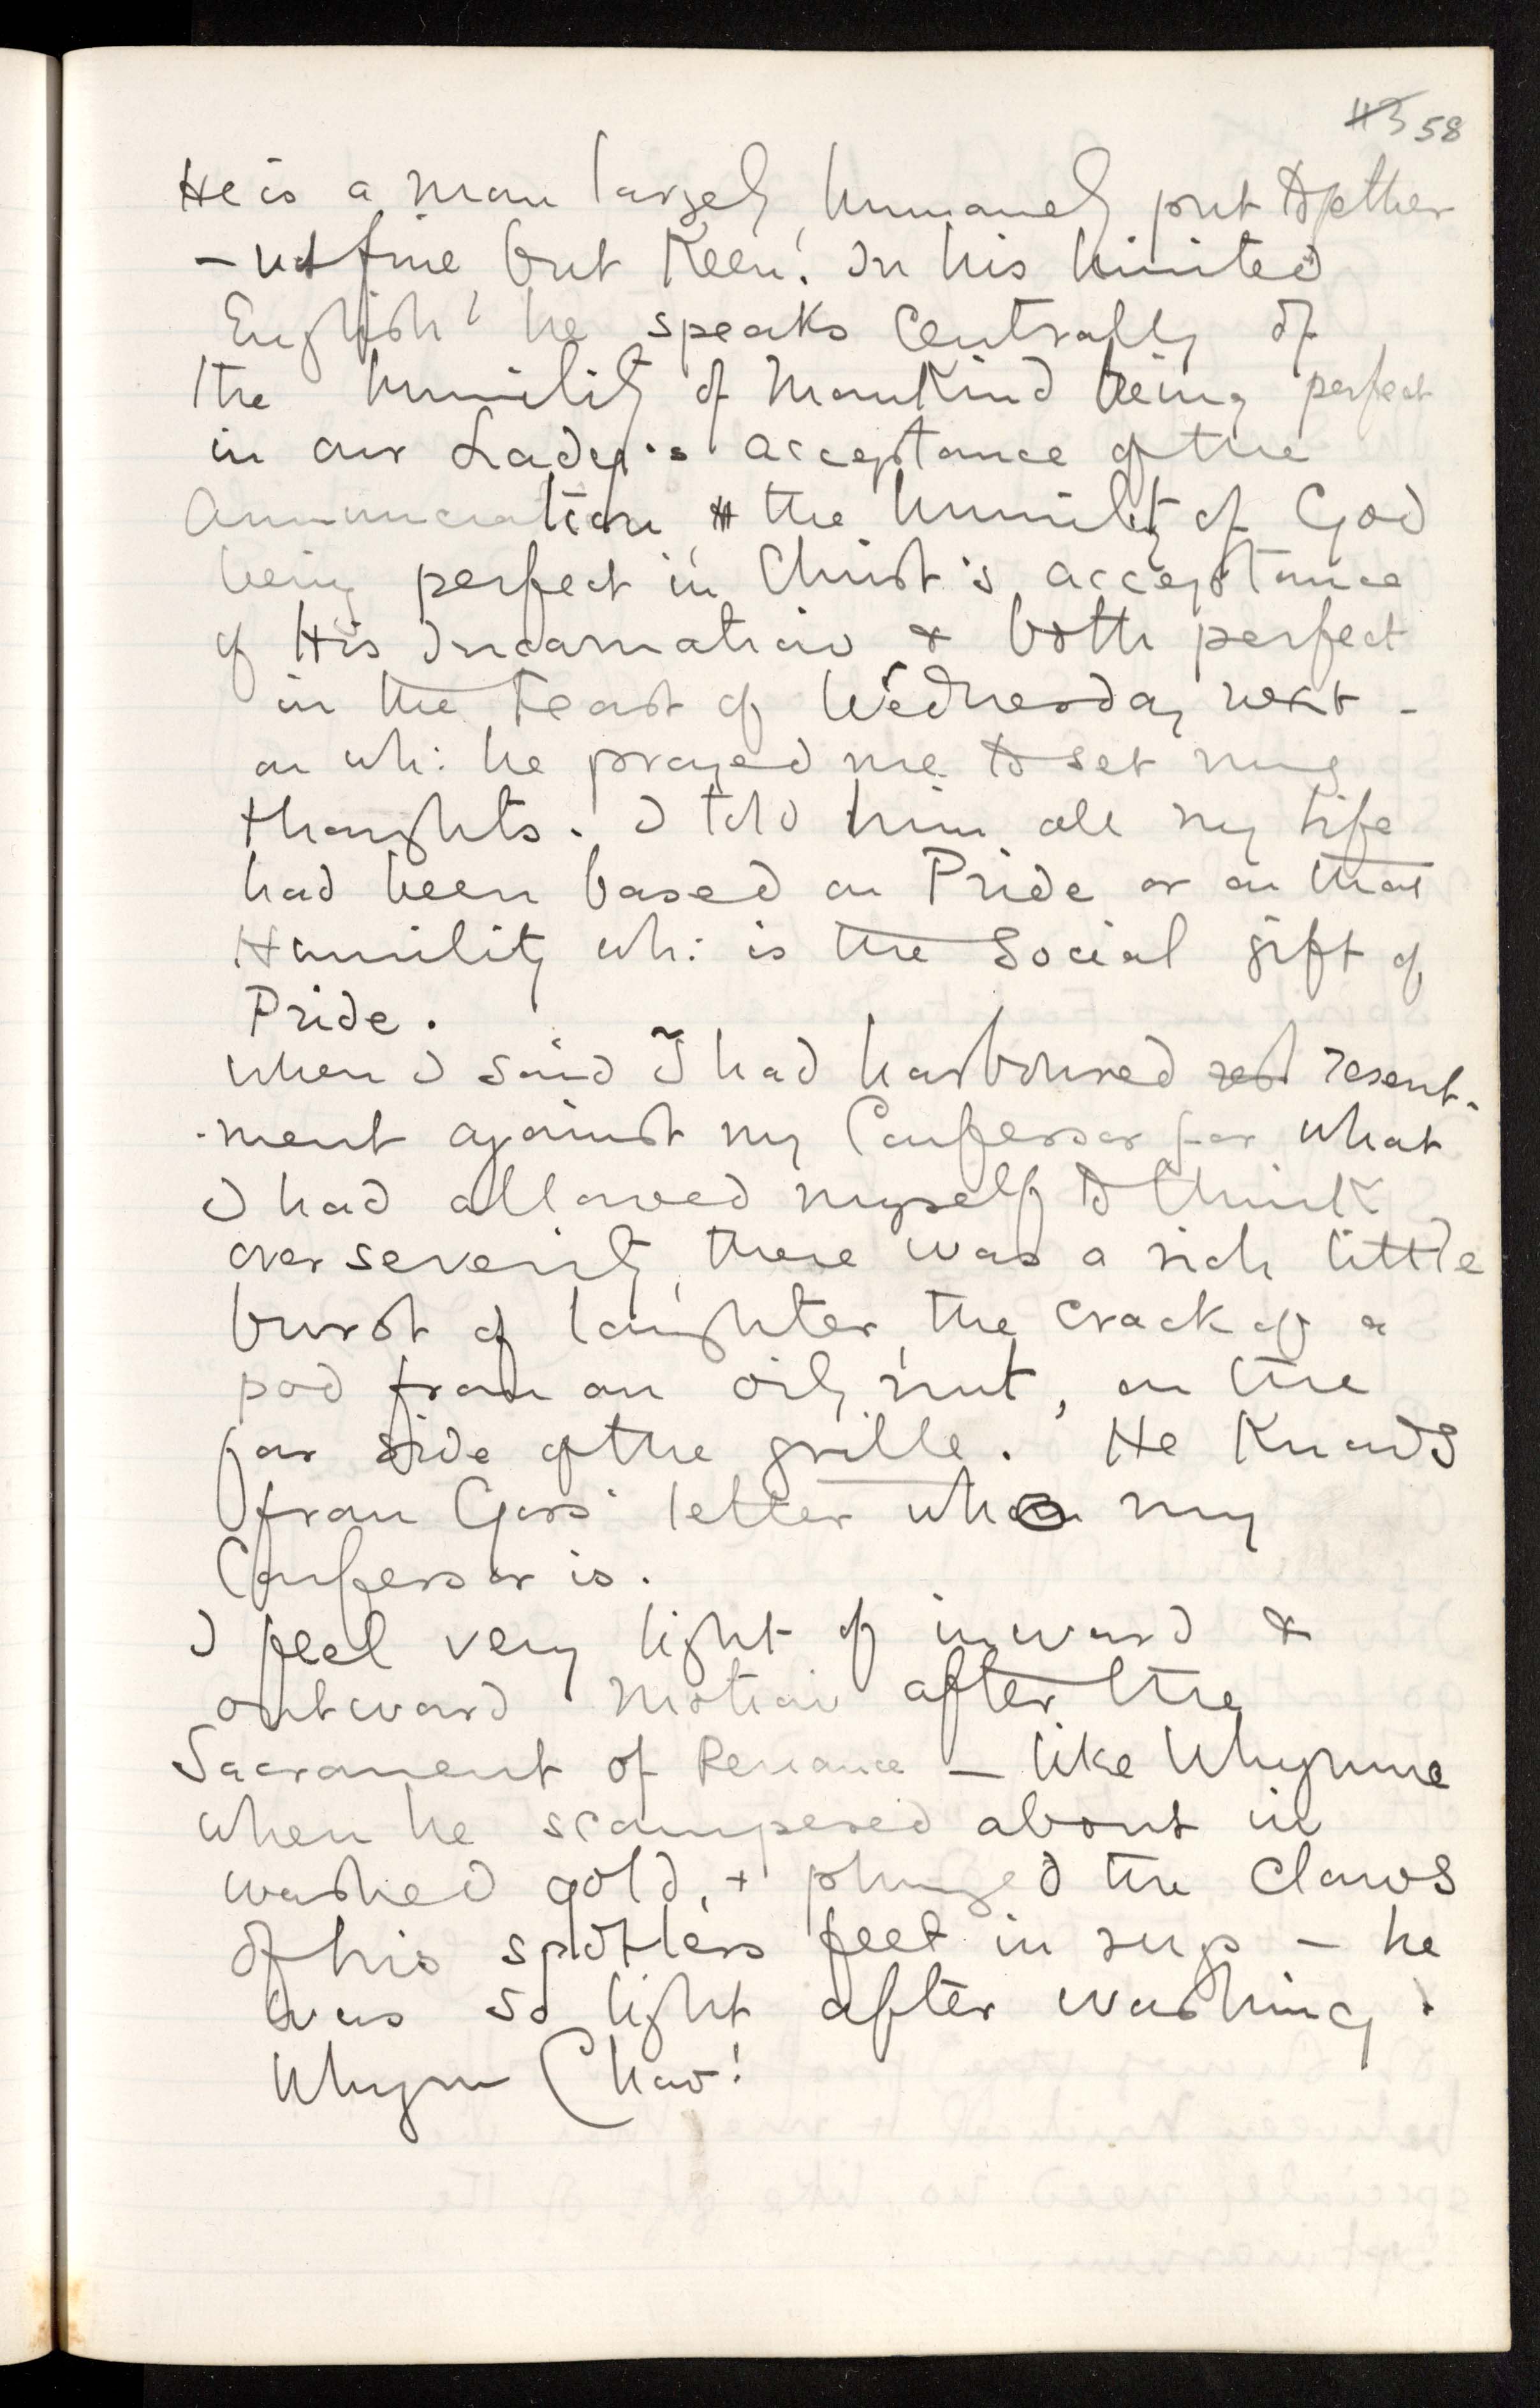 58
He is a man largely, humanely put together
– not fine but Keen. In his limited
English he speaks centrally of
the humility of Mankind being perfect
in our Lady's acceptance of the
Annunciation, the humility of God
being perfect in Christ's acceptance
of His Incarnation & both perfect
in the Feast of Wednesday next –
on wh: he prayed me to set my
thoughts. I told him all my life
had been based on Pride or on that
Humility wh: is the Social gift of
Pride.
When I said I had harboured resent-
-ment against my Confessor for what
I had allowed myself to think
over severity, there was a rich little
burst of laughter, the crack of a
pod from an oily nut, on the
far side of the grille. He Knows
from Goss' letter who my
Confessor is.
I feel very light of inward &
outward motion after the
Sacrament of Penance – like Whymme
when he scampered about in
washed gold, + plunged the claws
of his spotless feet in rugs – he
was so light after washing.
Whym Chow!